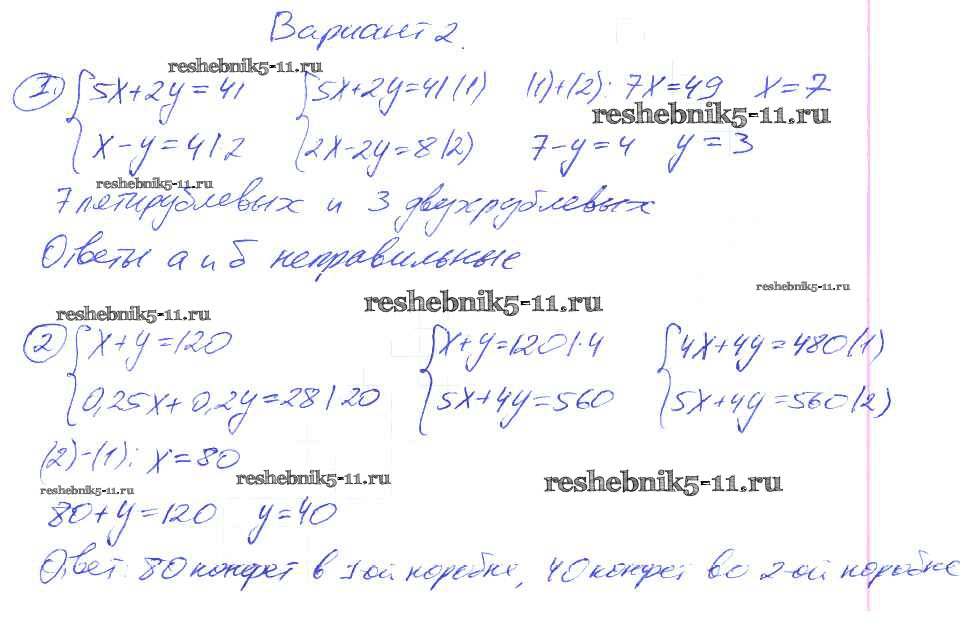 Вариант 2.
reshebnik5-11.ru
1. { 5x+2y=41 { 5x+2y=41 (1) (1)+(2): 7x=49 x=7
reshebnik5-11.ru
x-y=4 |·2 2x-2y=8 (2) 7-y=4 y=3
reshebnik5-11.ru
7 пятирублевых и 3 двухрублевых
Ответы а и б неправильные
reshebnik5-11.ru
reshebnik5-11.ru
reshebnik5-11.ru
2 { x+y=120 { x+y=120 |·4 { 4x+4y=480 (1)
0,25x+0,2y=28 |·20 5x+4y=560 5x+4y=560 (2)
(2)-(1): x=80
reshebnik5-11.ru
reshebnik5-11.ru
reshebnik5-11.ru
80+y=120 y=40
Ответ: 80 конфет в 1ой коробке, 40 конфет во 2-ой коробке